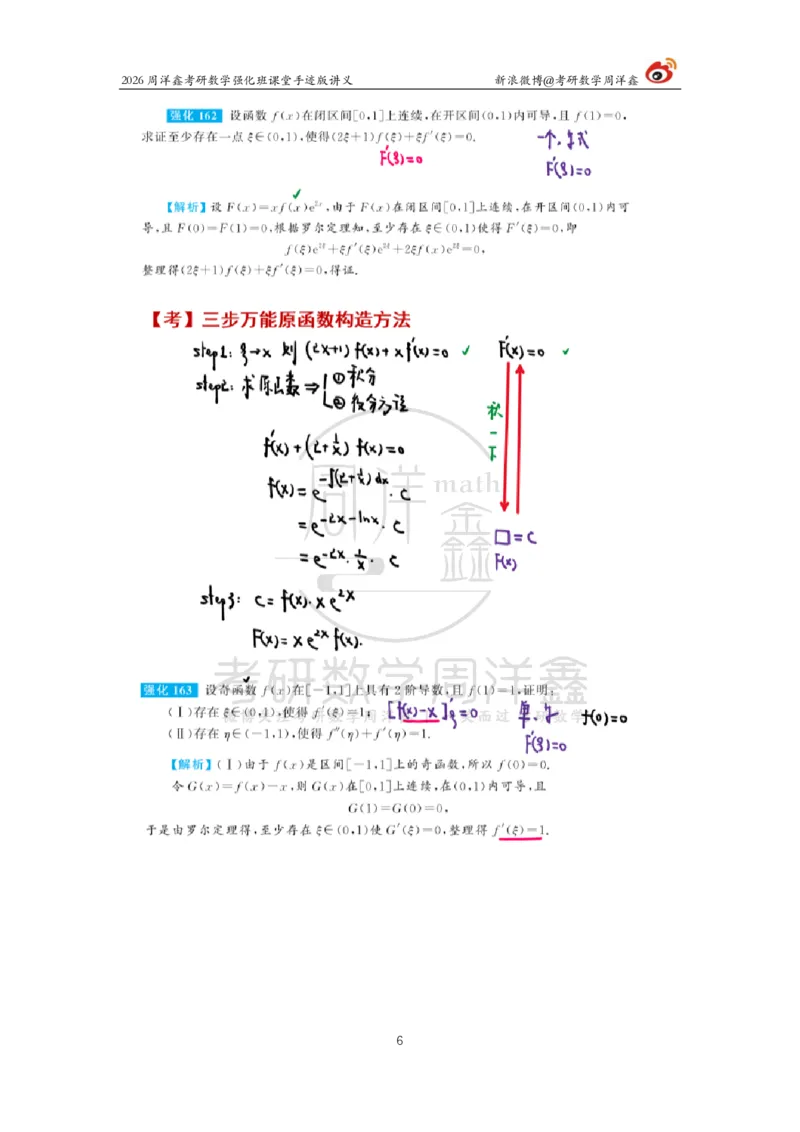 2026 周洋鑫考研数学强化班课堂手迹版讲义 新浪微博@考研数学周洋鑫
强化 162 设函数 f(x)在闭区间[0,1]上连续,在开区间(0,1)内可导,且 f(1)=0,
求证至少存在一点 ξ∈(0,1),使得(2ξ+1)f(ξ)+ξf′(ξ)=0.
一个,等式
F′(ξ)=0
F′(ξ)=0
【解析】设 F(x)=xf(x)e²ˣ,由于 F(x)在闭区间[0,1]上连续,在开区间(0,1)内可
导,且 F(0)=F(1)=0,根据罗尔定理知,至少存在 ξ∈(0,1)使得 F′(ξ)=0,即
f(ξ)e^{2ξ}+ξf′(ξ)e^{2ξ}+2ξf(x)e^{2ξ}=0,
整理得(2ξ+1)f(ξ)+ξf′(ξ)=0,得证.
【考】三步万能原函数构造方法
step1: ξ→x 则 (2x+1)f(x)+xf′(x)=0 ✓ F′(x)=0 ✓
step2: 求原函数 ⇒ ① 积分
② 微分方程
积一下
f′(x)+(2+1/x)f(x)=0
f(x)=e^{-∫(2+1/x)dx}·C
=e^{-2x-lnx}·C
=e^{-2x}·1/x·C
□=C
F(x)
step3: C=f(x)·xe^{2x}
F(x)=xe^{2x}f(x).
周洋鑫 math
考研数学周洋鑫
强化 163 设奇函数 f(x)在[-1,1]上具有 2 阶导数,且 f(1)=1,证明:
(Ⅰ)存在 ξ∈(0,1),使得 f′(ξ)=1; [f(x)-x]′ξ=0 单,等 f(0)=0
(Ⅱ)存在 η∈(-1,1),使得 f″(η)+f′(η)=1. F′(ξ)=0
【解析】(Ⅰ)由于 f(x)是区间[-1,1]上的奇函数,所以 f(0)=0.
令 G(x)=f(x)-x,则 G(x)在[0,1]上连续,在(0,1)内可导,且
G(1)=G(0)=0,
于是由罗尔定理得,至少存在 ξ∈(0,1)使 G′(ξ)=0,整理得 f′(ξ)=1.
6